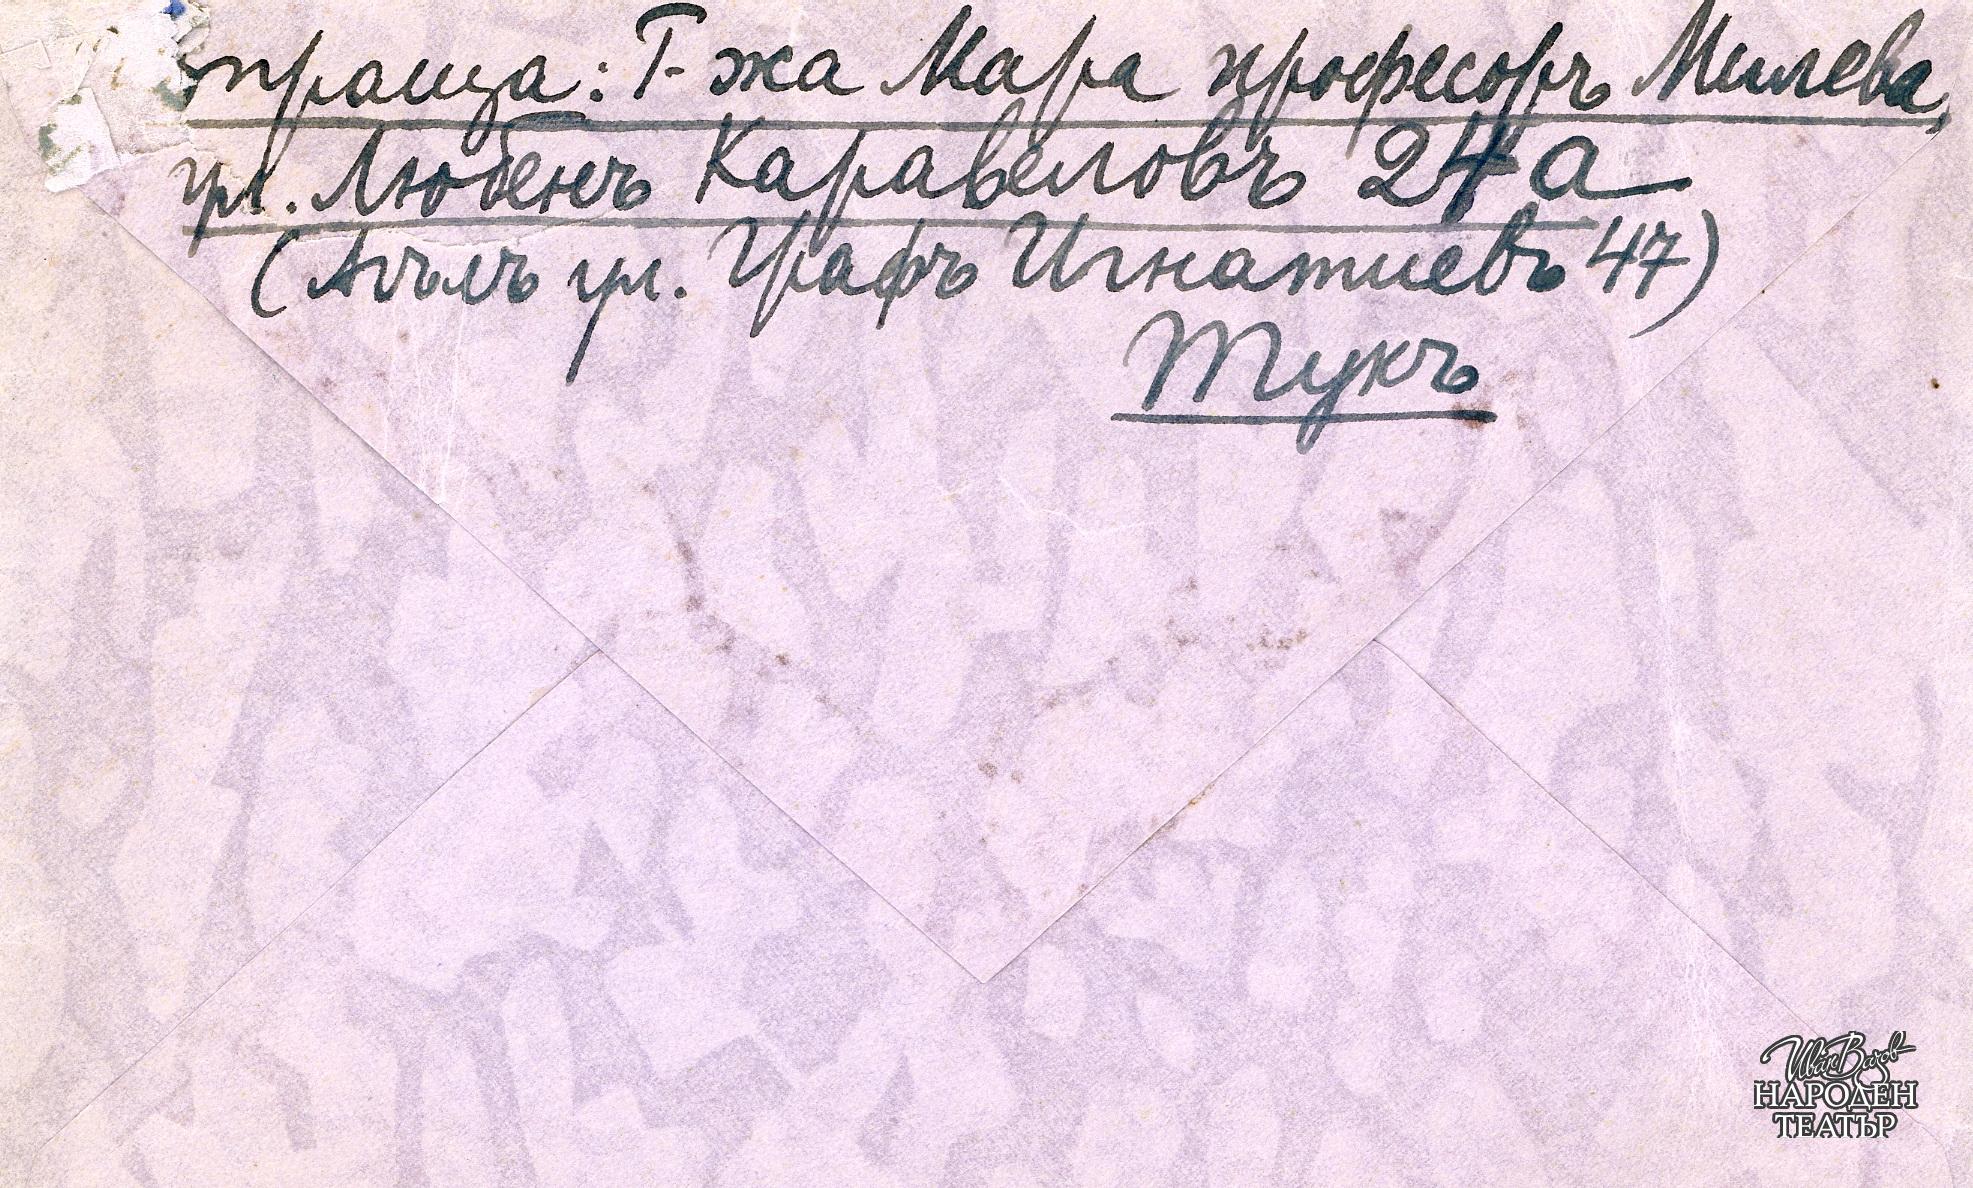 зпраща: Г-жа Мара професоръ Милева,
ул. Любенъ Каравеловъ 24 а
(Агълъ ул. Графъ Игнатиевъ 47)
Тукъ
Иван Вазов
НАРОДЕН
ТЕАТЪР